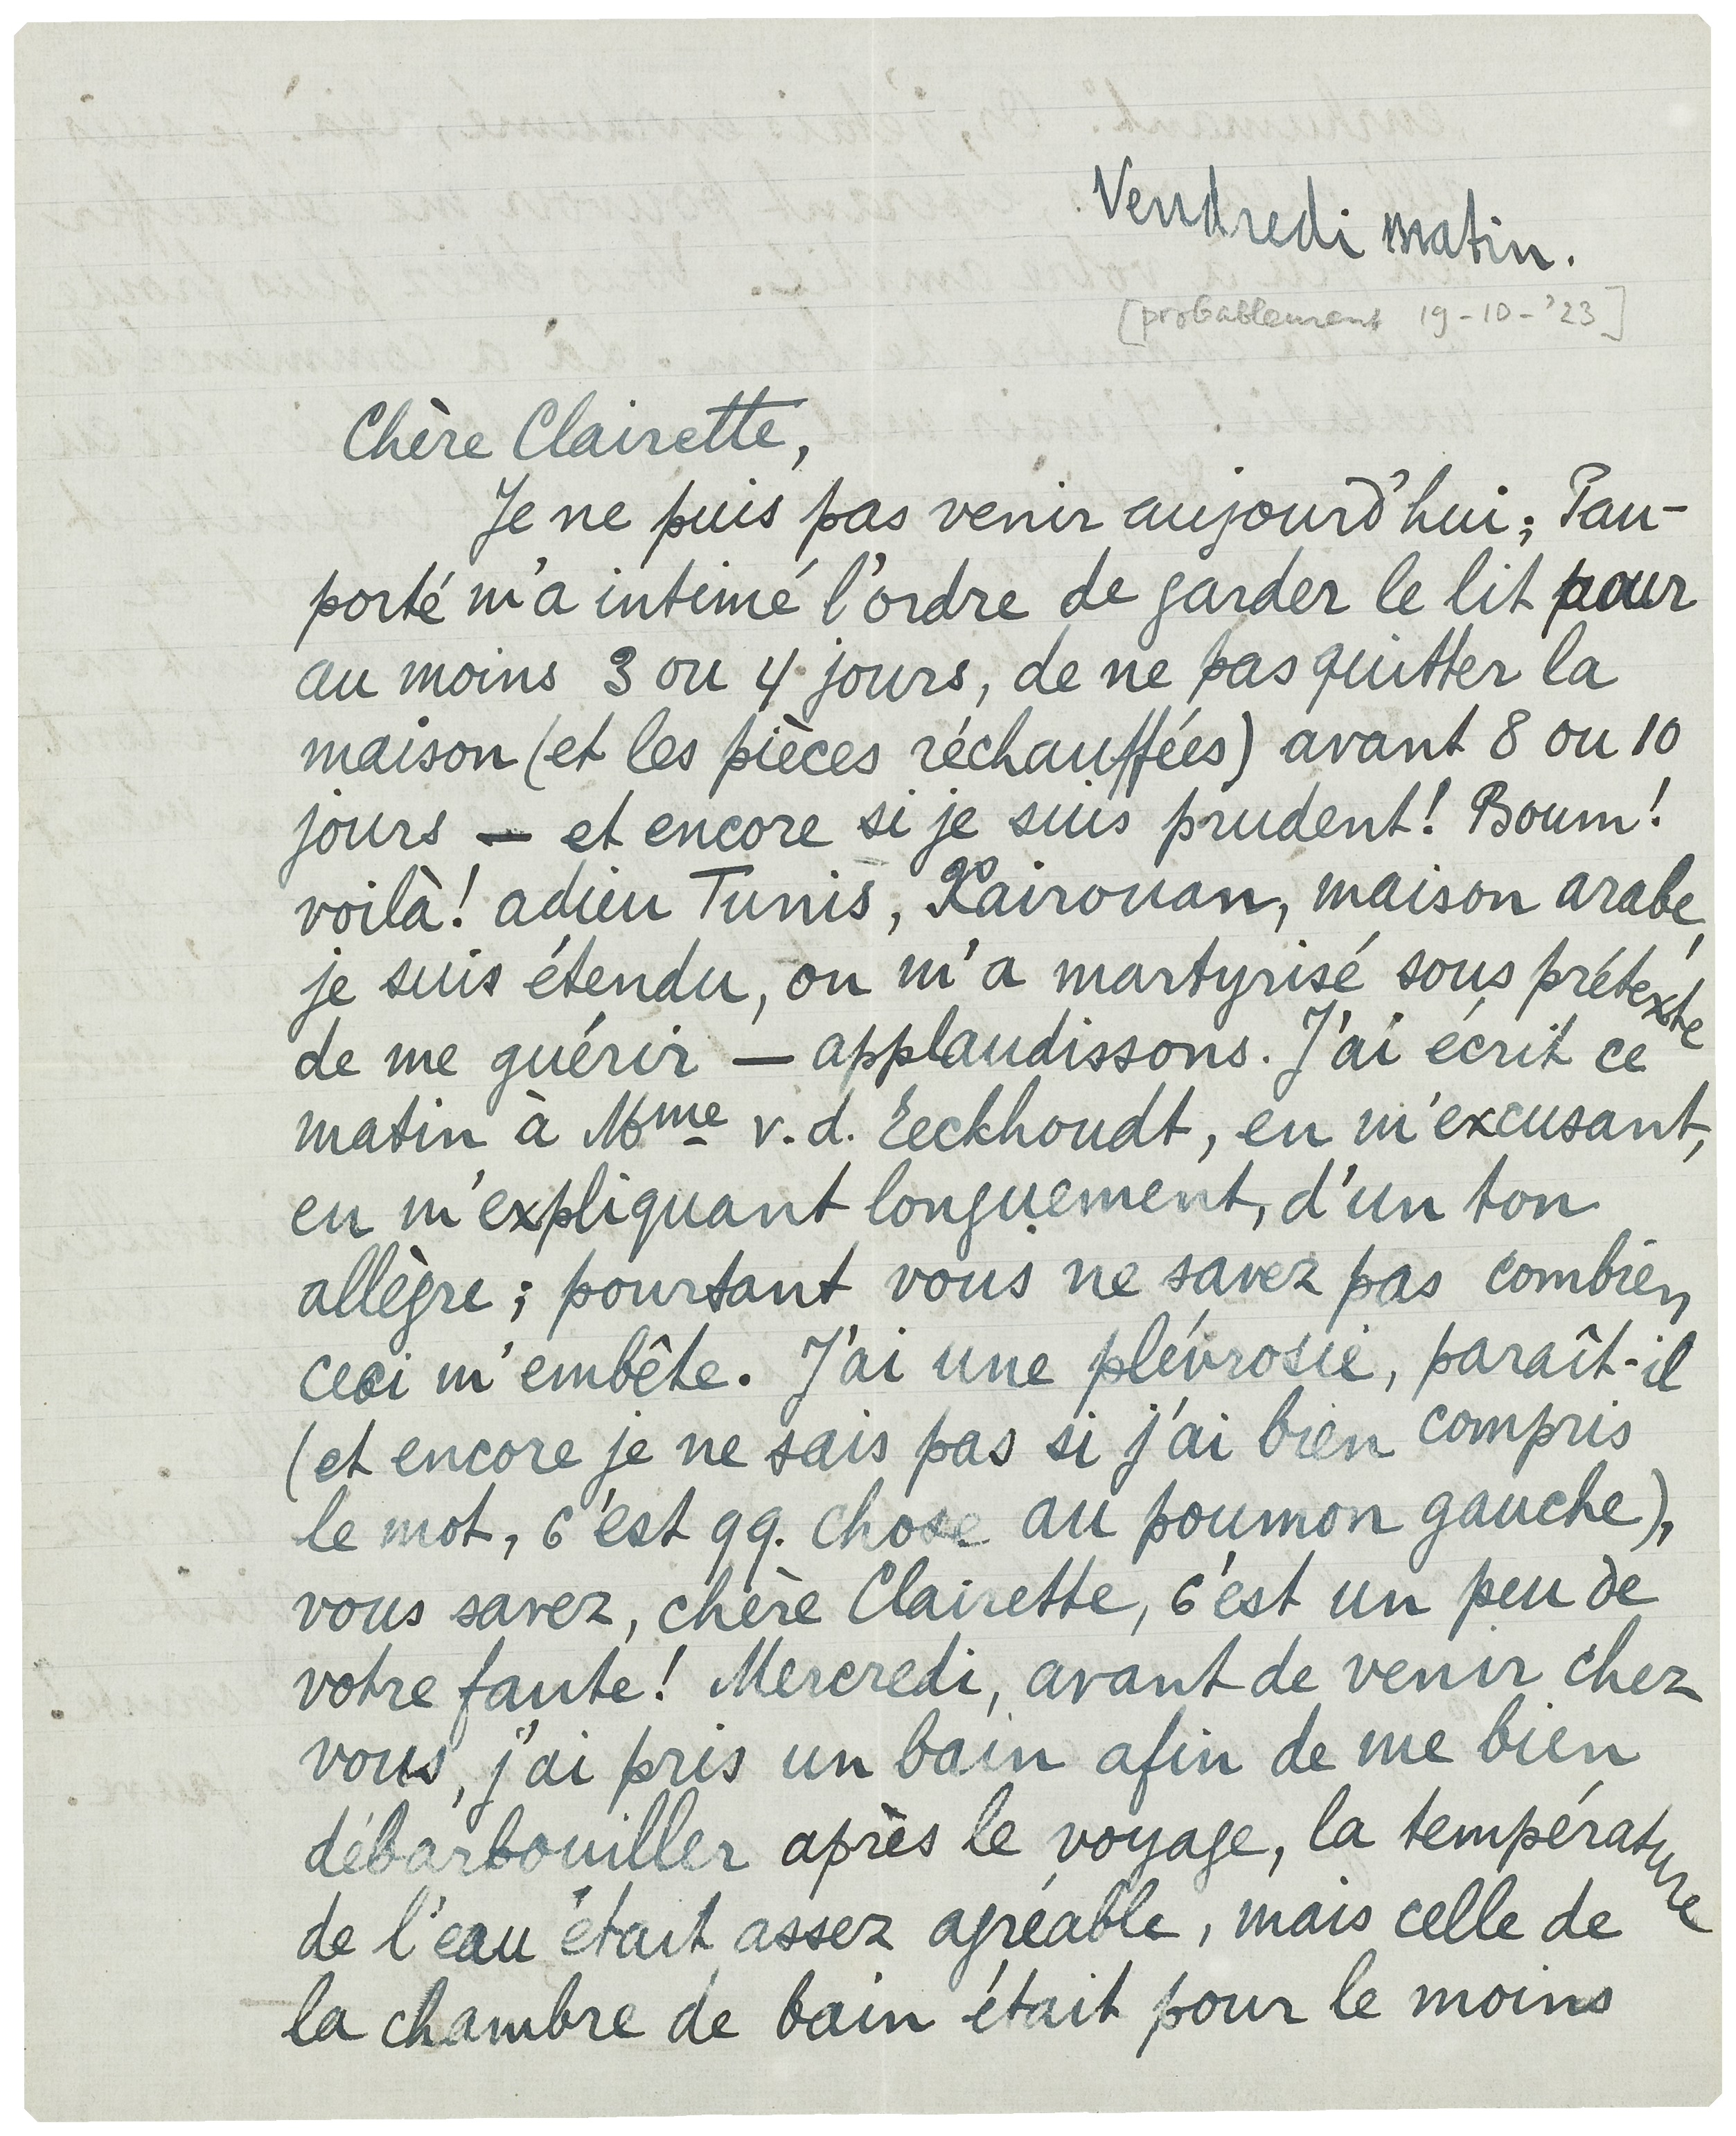 Vendredi matin.
[probablement 19-10-'23]
Chère Clairette,
Je ne puis pas venir aujourd'hui; Pau-
porté m'a intimé l'ordre de garder le lit pour
au moins 3 ou 4 jours, de ne pas quitter la
maison (et les pièces réchauffées) avant 8 ou 10
jours — et encore si je suis prudent! Boum!
voilà! adieu Tunis, Kairouan, maison arabe,
je suis étendu, on m'a martyrisé sous prétexte
de me guérir — applaudissons. J'ai écrit ce
matin à Mme v.d. Eeckhoudt, en m'excusant,
en m'expliquant longuement, d'un ton
allègre; pourtant vous ne savez pas combien
ceci m'embête. J'ai une plévrosie, paraît-il
(et encore je ne sais pas si j'ai bien compris
le mot, c'est qq. chose au poumon gauche),
vous savez, chère Clairette, c'est un peu de
votre faute! Mercredi, avant de venir chez
vous, j'ai pris un bain afin de me bien
débarbouiller après le voyage, la température
de l'eau était assez agréable, mais celle de
la chambre de bain était pour le moins